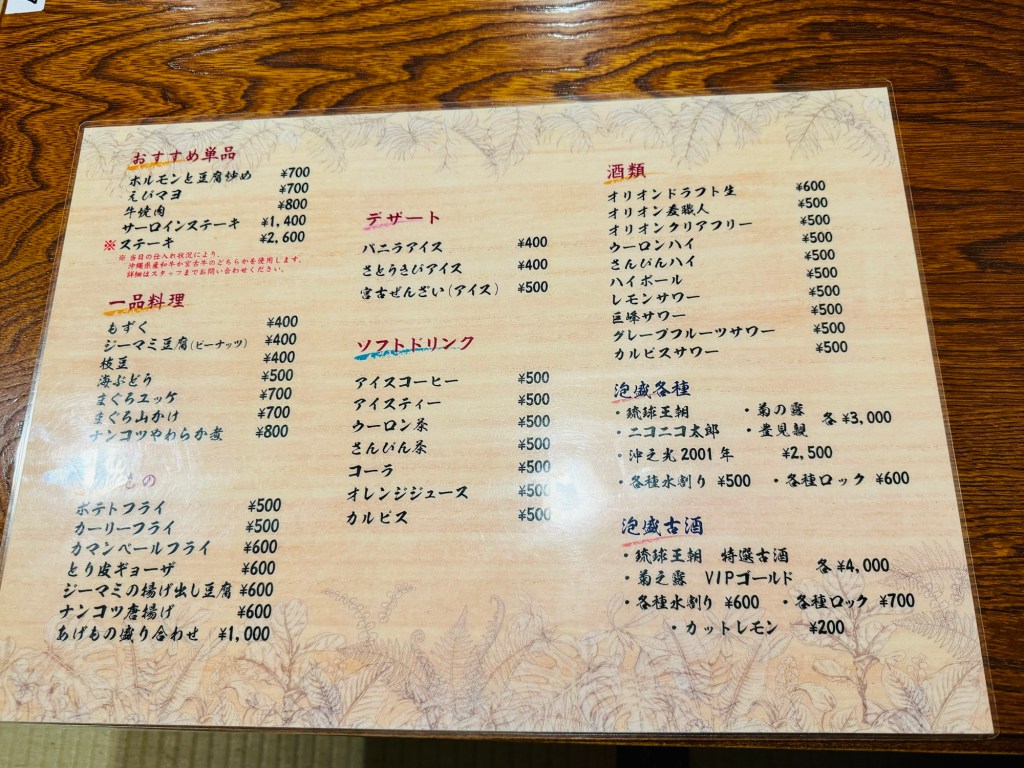 おすすめ単品
ホルモンと豆腐炒め ¥700
えびマヨ ¥700
牛焼肉 ¥800
サーロインステーキ ¥1,400
※ステーキ ¥2,600
※当日の仕入れ状況により、
沖縄県産和牛か宮古牛のどちらかを使用します。
詳細はスタッフまでお問い合わせください。
一品料理
もずく ¥400
ジーマミ豆腐(ピーナッツ) ¥400
枝豆 ¥400
海ぶどう ¥500
まぐろユッケ ¥700
まぐろ山かけ ¥700
ナンコツやわらか煮 ¥800
もの
ポテトフライ ¥500
カーリーフライ ¥500
カマンベールフライ ¥600
とり皮ギョーザ ¥600
ジーマミの揚げ出し豆腐 ¥600
ナンコツ唐揚げ ¥600
あげもの盛り合わせ ¥1,000
デザート
バニラアイス ¥400
さとうきびアイス ¥400
宮古ぜんざい(アイス) ¥500
ソフトドリンク
アイスコーヒー ¥500
アイスティー ¥500
ウーロン茶 ¥500
さんぴん茶 ¥500
コーラ ¥500
オレンジジュース ¥500
カルピス ¥500
酒類
オリオンドラフト生 ¥600
オリオン麦職人 ¥500
オリオンクリアフリー ¥500
ウーロンハイ ¥500
さんぴんハイ ¥500
ハイボール ¥500
レモンサワー ¥500
巨峰サワー ¥500
グレープフルーツサワー ¥500
カルピスサワー ¥500
泡盛各種
・琉球王朝 ・菊の露 各 ¥3,000
・ニコニコ太郎 ・豊見親
・沖之光2001年 ¥2,500
・各種水割り ¥500 ・各種ロック ¥600
泡盛古酒
・琉球王朝 特選古酒 各 ¥4,000
・菊之露 VIPゴールド
・各種水割り ¥600 ・各種ロック ¥700
・カットレモン ¥200